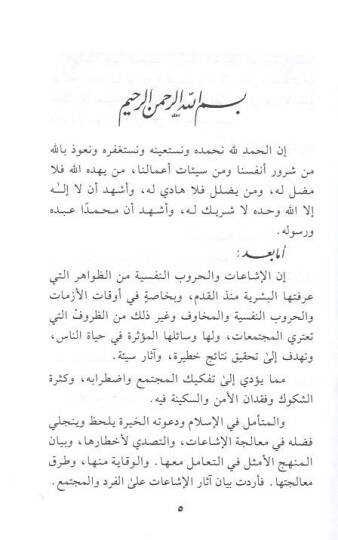 بسم الله الرحمن الرحيم
إن الحمد لله نحمده ونستعينه ونستغفره ونعوذ بالله
من شرور أنفسنا ومن سيئات أعمالنا، من يهده الله فلا
مضل له، ومن يضلل فلا هادي له، وأشهد أن لا إلٰه
إلا الله وحده لا شريك له، وأشهد أن محمدًا عبده
ورسوله.
أما بعد:
إن الإشاعات والحروب النفسية من الظواهر التي
عرفتها البشرية منذ القدم، وبخاصةٍ في أوقات الأزمات
والحروب النفسية والمخاوف وغير ذلك من الظروف التي
تعتري المجتمعات، ولها وسائلها المؤثرة في حياة الناس،
وتهدف إلىٰ تحقيق نتائج خطيرة، وآثار سيئة.
مما يؤدي إلىٰ تفكيك المجتمع واضطرابه، وكثرة
الشكوك وفقدان الأمن والسكينة فيه.
والمتأمل في الإسلام ودعوته الخيرة يلحظ وينجلي
فضله في معالجة الإشاعات، والتصدي لأخطارها، وبيان
المنهج الأمثل في التعامل معها. والوقاية منها، وطرق
معالجتها. فأردت بيان آثار الإشاعات علىٰ الفرد والمجتمع.
٥